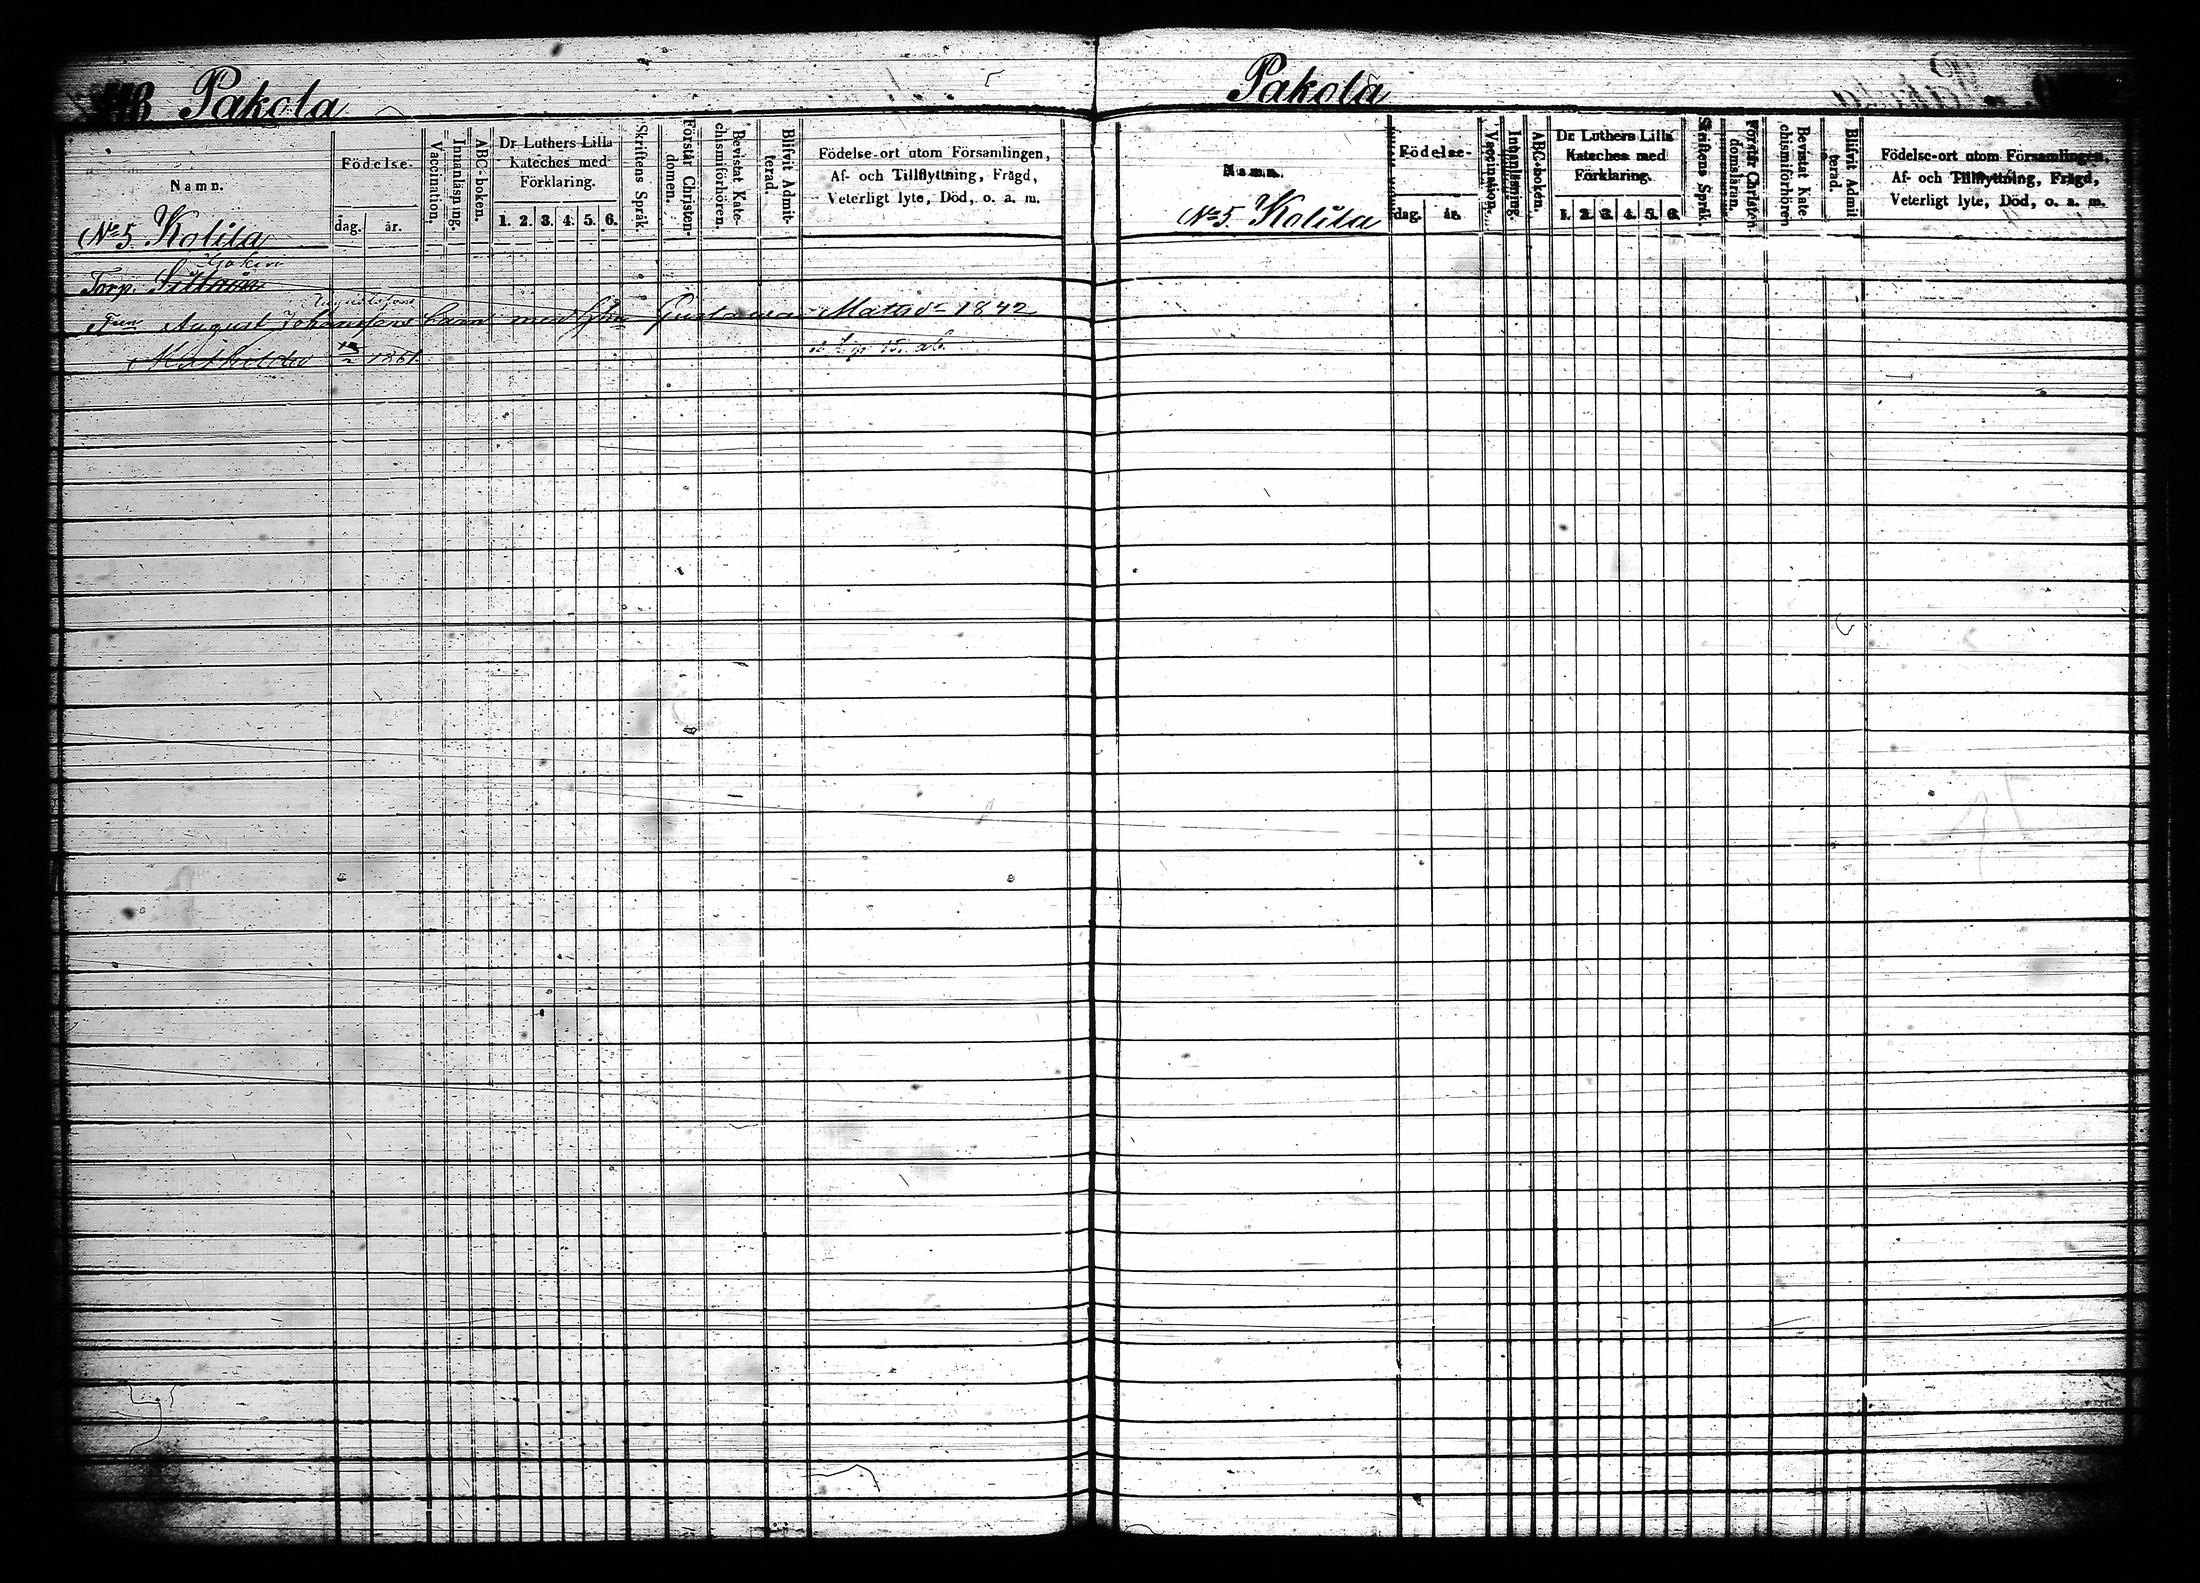 Pakola
Namn.
Födelse-
dag. år.
Vaccination.
Innanläsning.
ABC-boken.
Dr Luthers Lilla
Kateches med
Förklaring.
1. 2. 3. 4. 5. 6.
Skriftens Språk.
Förstår Christen-
domen.
Bevistat Kate-
chismiförhören.
Blifvit Admit-
terad.
Födelse-ort utom Församlingen,
Af- och Tillflyttning, Frägd,
Veterligt lyte, Död, o. a. m.
No 5. Kolila
Torp.
August Johansson barn med Gustava 1842
Mathilda 1861
Pakola
Namn.
No 5. Kolila
Födelse-
dag. år.
Vaccination.
Innanläsning.
ABC-boken.
Dr Luthers Lilla
Kateches med
Förklaring.
1. 2. 3. 4. 5. 6.
Skriftens Språk.
Förstår Christen-
domsläran.
Bevistat Kate
chismiförhören
Blifvit Admit
terad.
Födelse-ort utom Församlingen,
Af- och Tillflyttning, Frägd,
Veterligt lyte, Död, o. a. m.